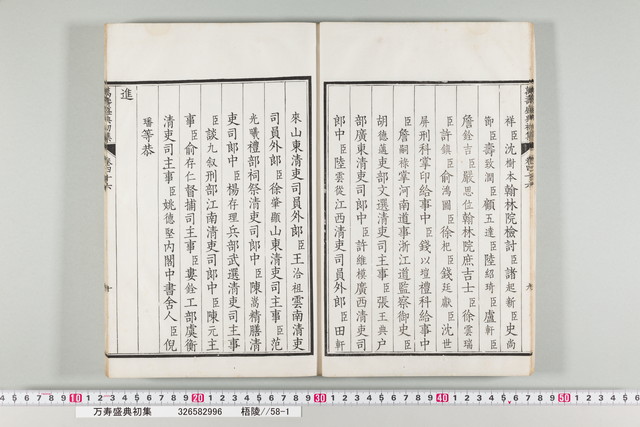 祥臣沈樹本翰林院檢討臣諸起新臣史尚
節臣壽致潤臣顧五達臣陸紹琦臣盧軒臣
詹銓吉臣嚴思位翰林院庶吉士臣徐雲瑞
臣許鎮臣俞鴻圖臣徐杞臣錢廷獻臣沈世
屏刑科掌印給事中臣錢以塏禮科給事中
臣詹嗣祿掌河南道事浙江道監察御史臣
胡德邁吏部文選清吏司主事臣張王典户
部廣東清吏司郎中臣許維模廣西清吏司
郎中臣陸雲從江西清吏司員外郎臣田軒
來山東清吏司員外郎臣王洽祖雲南清吏
司員外郎臣徐華顯山東清吏司主事臣范
光曦禮部祠祭清吏司郎中臣陳嵩精膳清
吏司郎中臣楊存理兵部武選清吏司主事
臣談九叙刑部江南清吏司郎中臣陳元主
事臣俞存仁督捕司主事臣婁銓工部虞衡
清吏司主事臣姚德堅內閣中書舍人臣倪
璠等恭
進
萬壽盛典初集
卷四十六
萬壽盛典初集
卷四十六
十
10 20 30 40 50
万寿盛典初集 326582996 梧陵//58-1